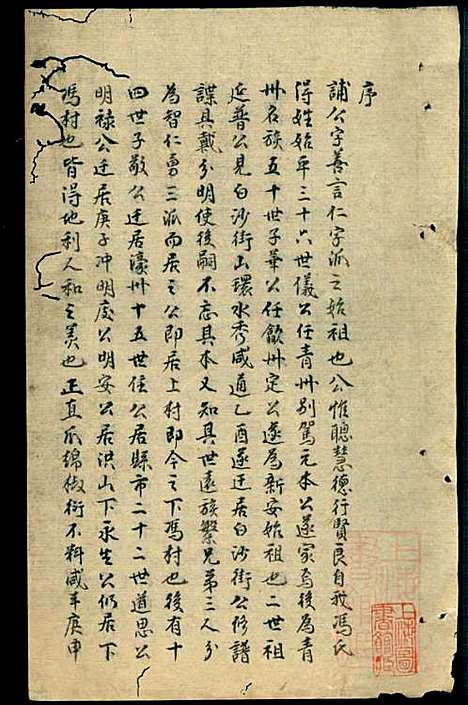 序
誧公字善言仁字派之始祖也公惟聰慧德行賢良自我馮氏
得姓始平三十六世儀公任青州別駕元本公遂家焉後為青
州名族五十世子華公任歙州定公遂為新安始祖也二世祖
延普公見白沙街山環水秀咸通乙酉遂迁居白沙街公修譜
諜具載分明使後嗣不忘具本又知具世遠族繁兄弟三人分
為智仁勇三派而居之公即居上村即今之下馮村也後有十
四世子敬公迁居濠州十五世任公居縣市二十二世道思公
明祿公迁居庚子冲明度公明安公居洪山下永生公仍居下
馮村也皆得地利人和之美也正直瓜綿椒衍不料咸丰庚申
上海圖
書館藏